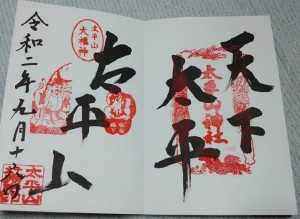 天下
太平
太平山神社
太平山
大福神
太平山
令和二年九月十
太平山